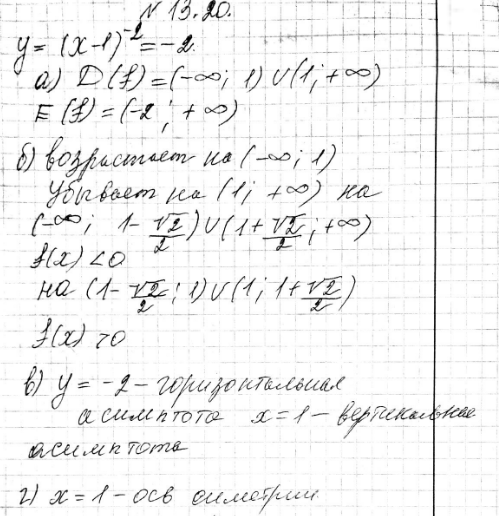 N 13.20.
y = (x-1)⁻² = -2.
а) D(f) = (-∞; 1) ∪ (1; +∞)
E(f) = (-2; +∞)
б) возрастает на (-∞; 1)
убывает на (1; +∞) на
(-∞; 1-√2/2) ∪ (1+√2/2; +∞)
f(x) < 0
на (1-√2/2; 1) ∪ (1; 1+√2/2)
f(x) > 0
в) y = -2 - горизонтальная
асимптота x = 1 - вертикальная
асимптота
г) x = 1 - ось симетрии